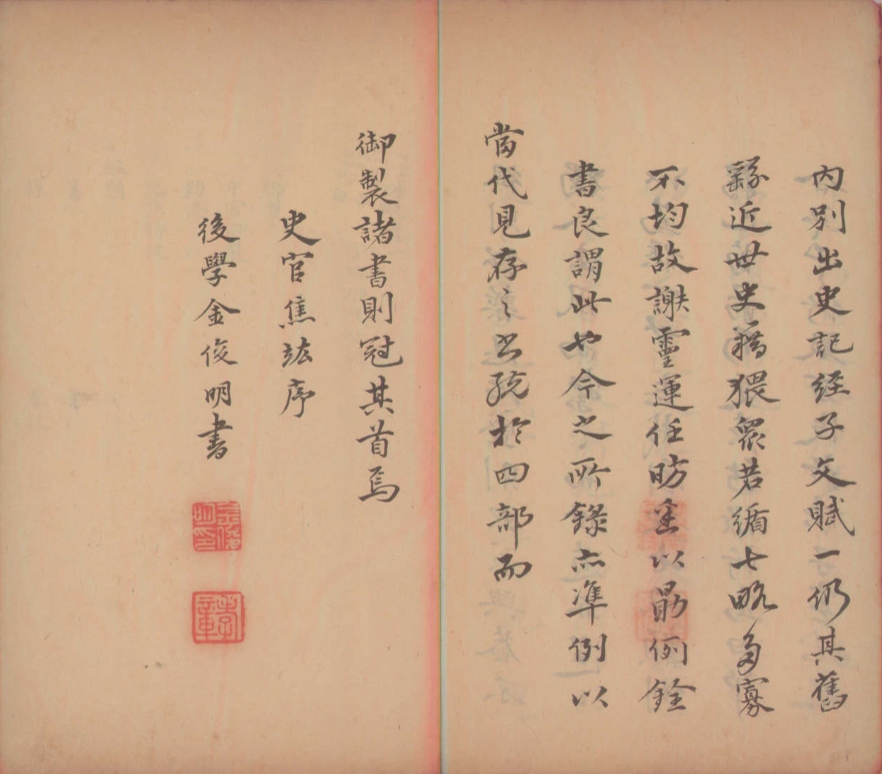 內別出史記經子文賦一仍其舊
繇近世史籍猥衆若循七略多寡
不均故謝靈運任昉並以勗例銓
書良謂此也今之所錄亦準例以
當代見存之書統於四部而
御製諸書則冠其首焉
史官焦竑序
後學金俊明書